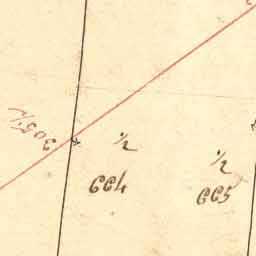 305½
½
664
½
665